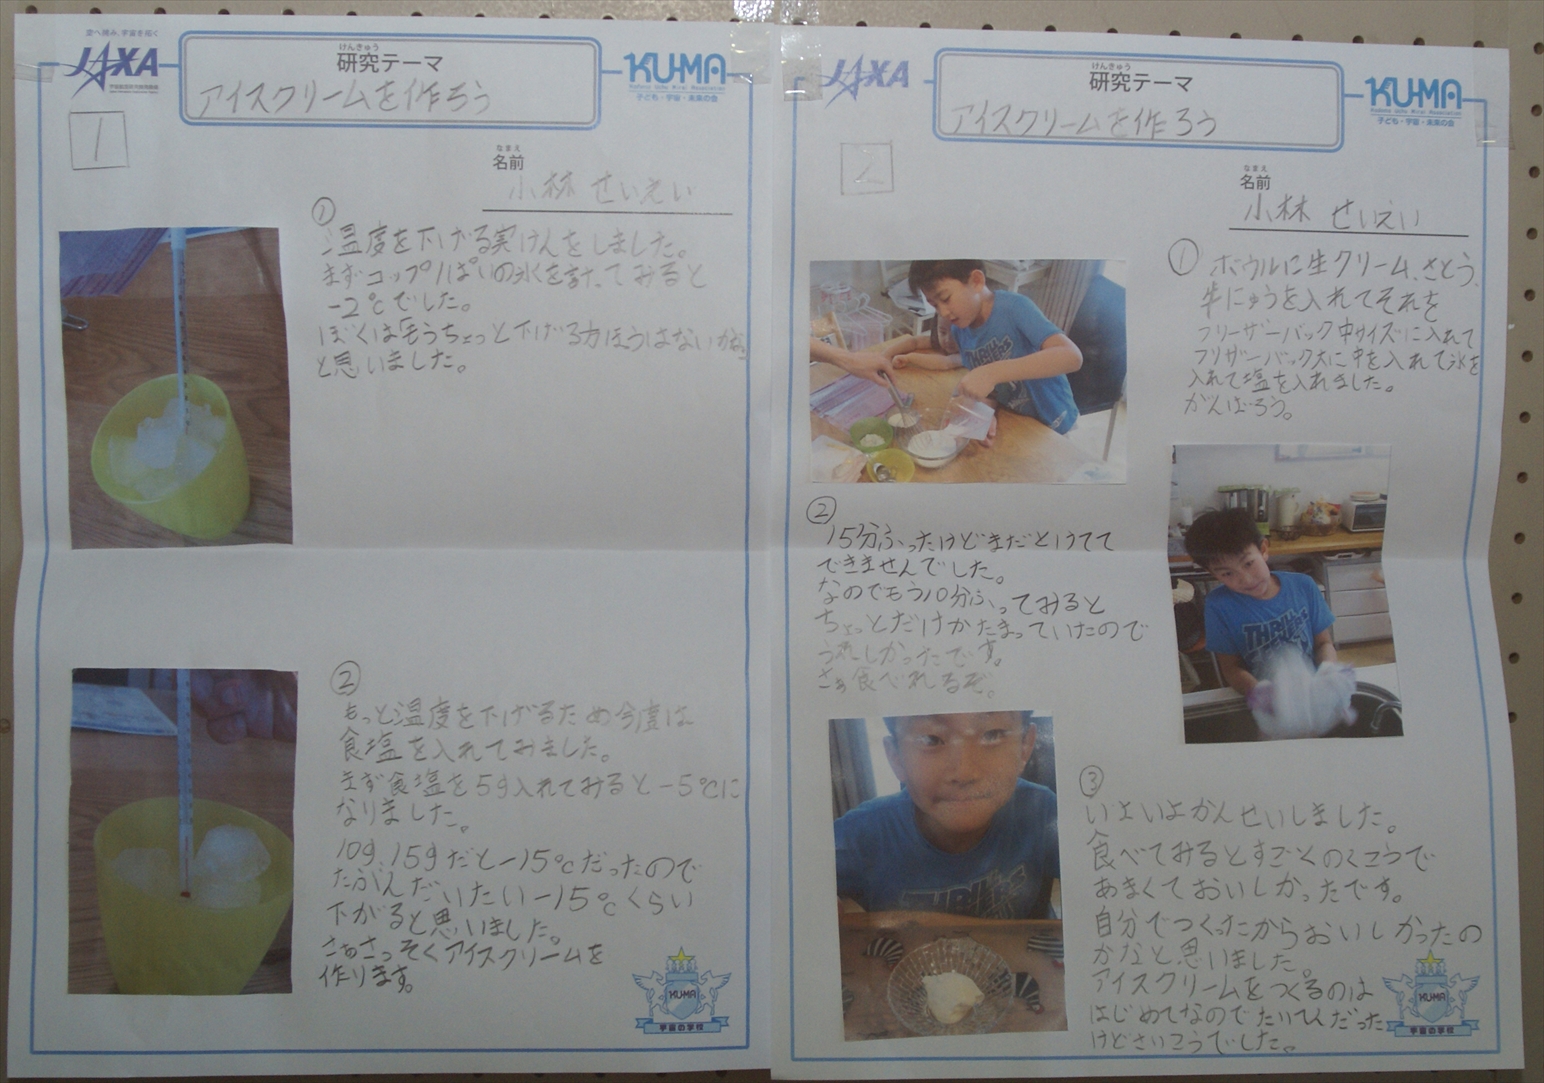 空へ挑み、宇宙を拓く
JAXA
けんきゅう
研究テーマ
アイスクリームを作ろう
KU-MA
子ども・宇宙・未来の会
1
なまえ
名前
小林 せいえい
①
温度を下げる実けんをしました。
まずコップ1ぱいの氷を計ってみると
-2℃でした。
ぼくはもうちょっと下げる方ほうはないかな
と思いました。
②
もっと温度を下げるため今度は
食塩を入れてみました。
まず食塩を5g入れてみると-5℃に
なりました。
10g、15gだと-15℃だったので
たぶんだいたい-15℃くらい
下がると思いました。
さぁさっそくアイスクリームを
作ります。
KUMA
宇宙の学校
JAXA
けんきゅう
研究テーマ
アイスクリームを作ろう
KU-MA
Kodomo Uchu Mirai Association
子ども・宇宙・未来の会
2
なまえ
名前
小林 せいえい
①
ボウルに生クリーム、さとう、
牛にゅうを入れてそれを
フリーザーバック中サイズに入れて
フリザーバック大に中を入れて氷を
入れて塩を入れました。
がんばろう。
②
15分ふったけどまだとけてて
できませんでした。
なのでもう10分ふってみると
ちょっとだけかたまっていたので
うれしかったです。
さぁ食べれるぞ。
③
いよいよかんせいしました。
食べてみるとすごくのうこうで
あまくておいしかったです。
自分でつくったからおいしかったの
かなと思いました。
アイスクリームをつくるのは
はじめてなのでたいへんだった
けどさいこうでした。
KUMA
宇宙の学校